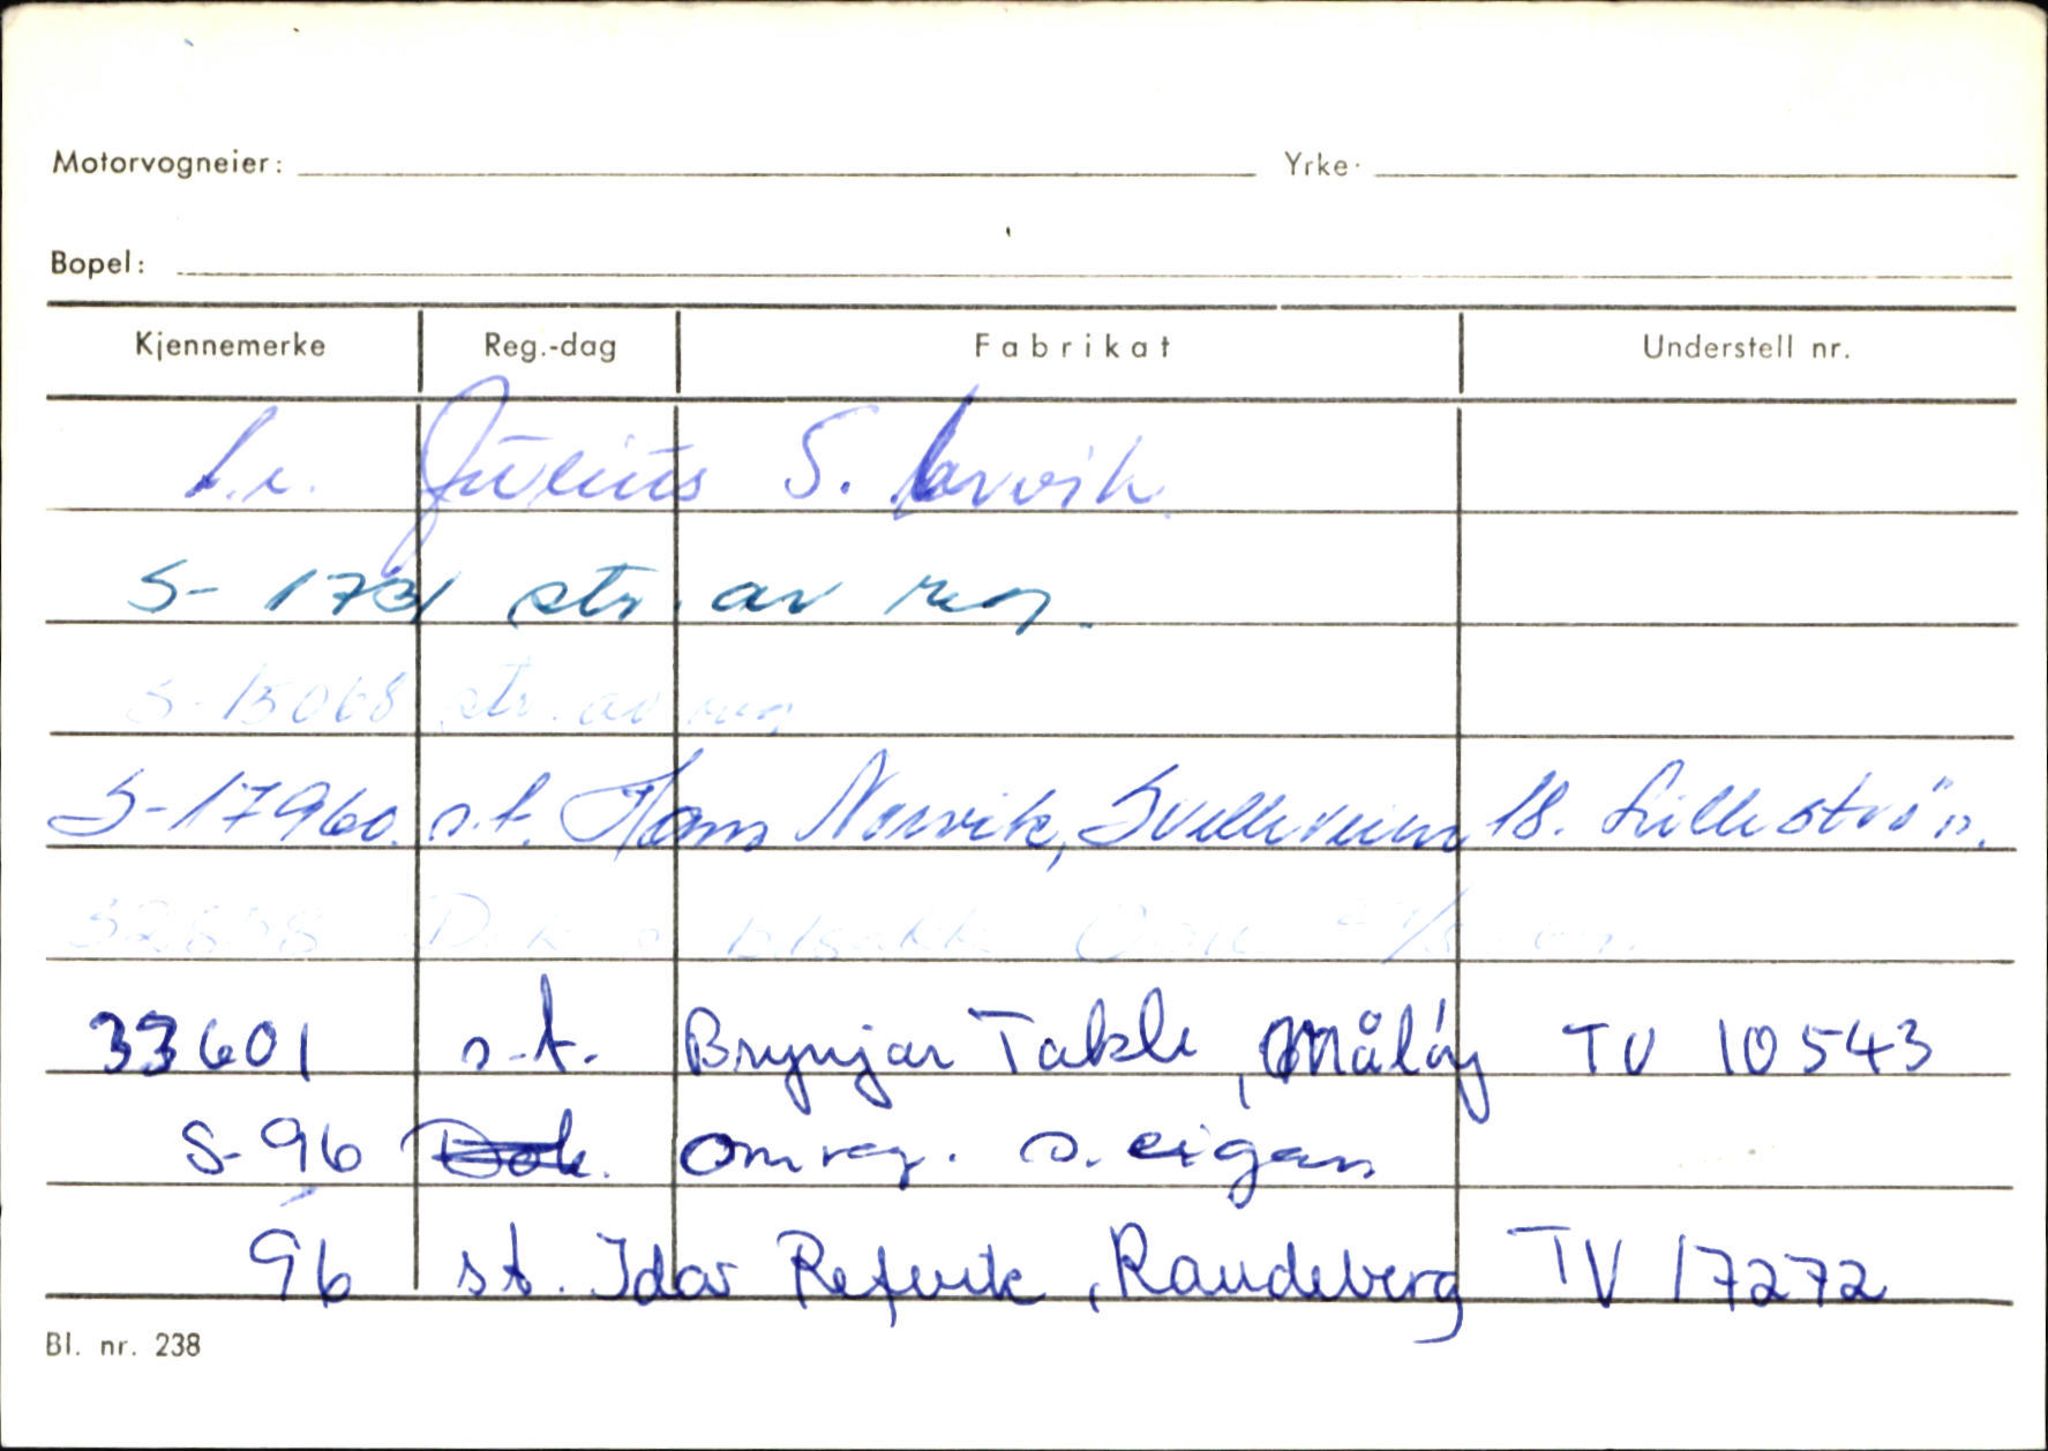 Motorvogneier: Yrke:
Bopel:
Kjennemerke Reg.-dag Fabrikat Understell nr.
Julius S.
S- 1731 str. av reg.
S-15068 str. av reg
S-17960. s.t. Hans Norvik, 18. Lilleström.
33601 s.t. Brynjar Takle, Måløy TV 10543
S-96 Dok. omreg. s. eigar
96 st. Idar Refvik, Raudeberg TV 17272
Bl. nr. 238